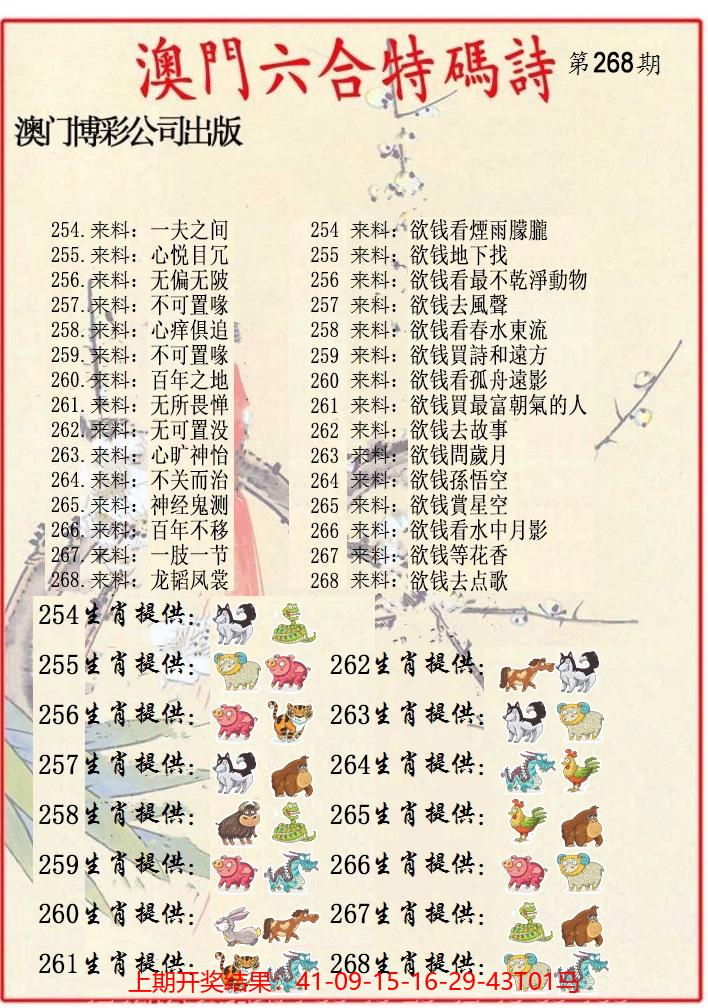 澳門六合特碼詩 第268期
澳门博彩公司出版
254.来料：一夫之间
255.来料：心悦目冗
256.来料：无偏无陂
257.来料：不可置喙
258.来料：心痒俱追
259.来料：不可置喙
260.来料：百年之地
261.来料：无所畏惮
262.来料：无可置没
263.来料：心旷神怡
264.来料：不关而治
265.来料：神经鬼测
266.来料：百年不移
267.来料：一肢一节
268.来料：龙韬凤裳
254 来料：欲钱看煙雨朦朧
255 来料：欲钱地下找
256 来料：欲钱看最不乾淨動物
257 来料：欲钱去風聲
258 来料：欲钱看春水東流
259 来料：欲钱買詩和遠方
260 来料：欲钱看孤舟遠影
261 来料：欲钱買最富朝氣的人
262 来料：欲钱去故事
263 来料：欲钱問歲月
264 来料：欲钱孫悟空
265 来料：欲钱賞星空
266 来料：欲钱看水中月影
267 来料：欲钱等花香
268 来料：欲钱去点歌
254生肖提供：
255生肖提供：
256生肖提供：
257生肖提供：
258生肖提供：
259生肖提供：
260生肖提供：
261生肖提供：
262生肖提供：
263生肖提供：
264生肖提供：
265生肖提供：
266生肖提供：
267生肖提供：
268生肖提供：
上期开奖结果：41-09-15-16-29-43T01马